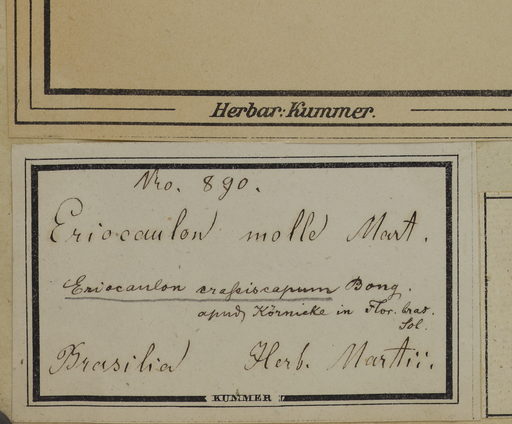 Herbar: Kummer.
Nro. 890.
Eriocaulon molle Mart.
Eriocaulon crassiscapum Bong.
apud Körnicke in Flor. bras.
Herb. Martii.
Brasilia
KUMMER